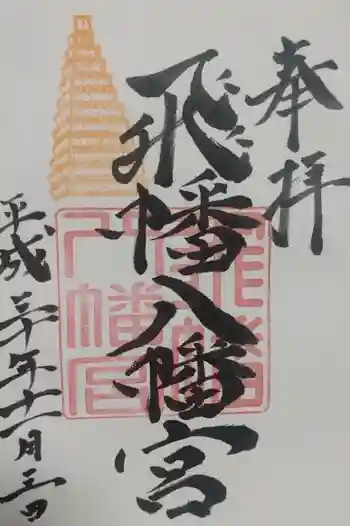 奉拝
飛幡八幡宮
平成三十年十一月三日
飛幡
八幡宮